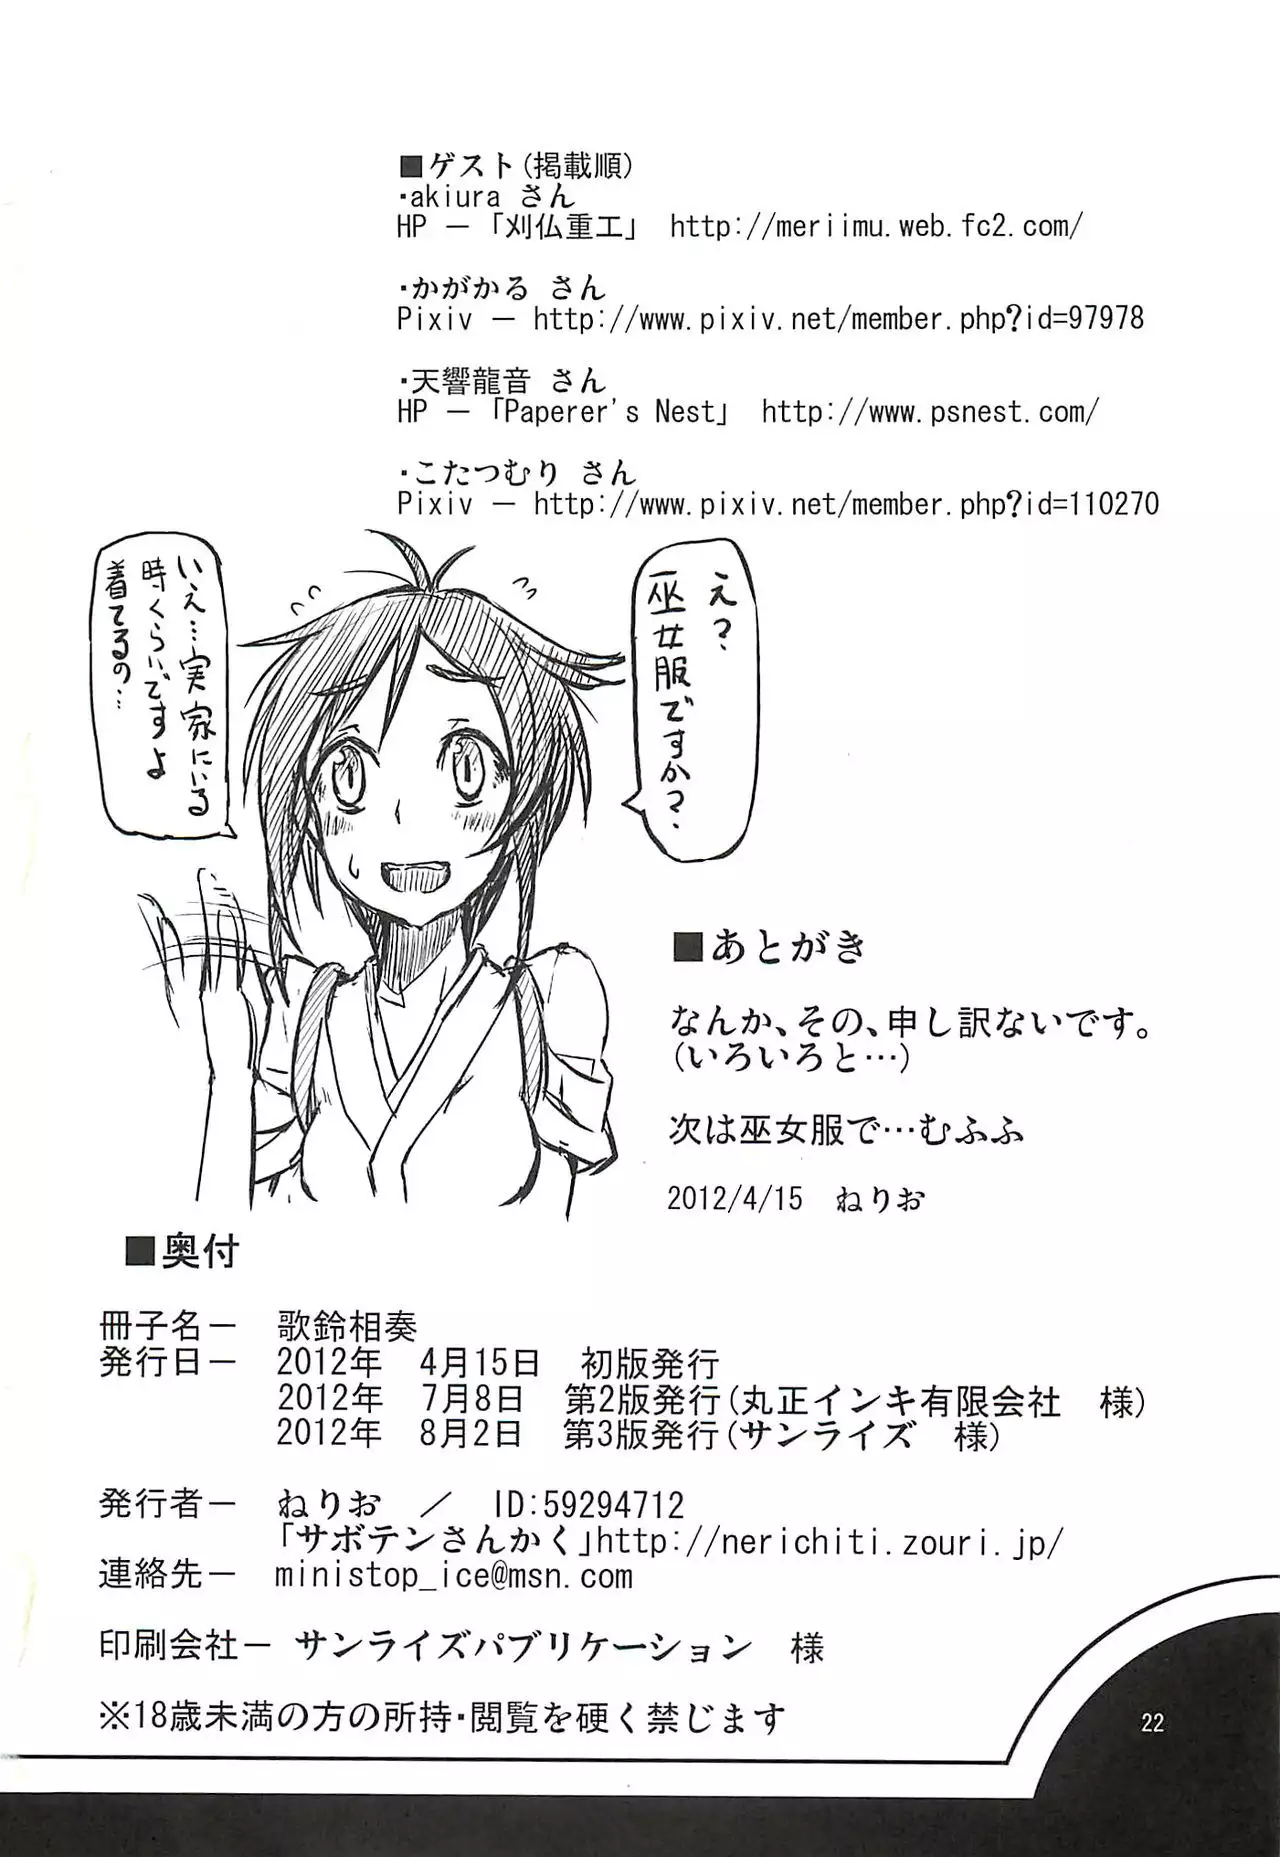 ■ゲスト(掲載順)
・akiura さん
HP － 「刈仏重工」 http://meriimu.web.fc2.com/
・かがかる さん
Pixiv － http://www.pixiv.net/member.php?id=97978
・天響龍音 さん
HP － 「Paperer's Nest」 http://www.psnest.com/
・こたつむり さん
Pixiv － http://www.pixiv.net/member.php?id=110270
え？
巫女服ですか？
いえ…実家にいる
時くらいですよ
着てるの…
■あとがき
なんか、その、申し訳ないです。
(いろいろと…)
次は巫女服で…むふふ
2012/4/15 ねりお
■奥付
冊子名－ 歌鈴相奏
発行日－ 2012年 4月15日 初版発行
2012年 7月8日 第2版発行(丸正インキ有限会社 様)
2012年 8月2日 第3版発行(サンライズ 様)
発行者－ ねりお ／ ID:59294712
「サボテンさんかく」http://nerichiti.zouri.jp/
連絡先－ ministop_ice@msn.com
印刷会社－ サンライズパブリケーション 様
※18歳未満の方の所持・閲覧を硬く禁じます
22